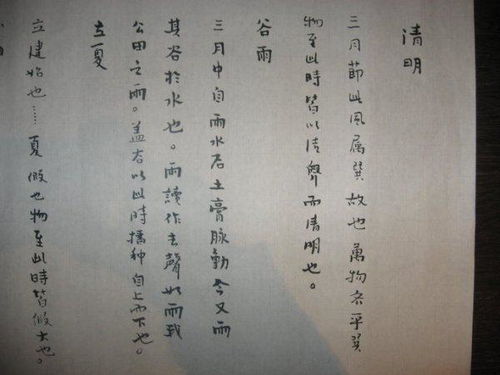 清明
三月節此風属巽故也萬物齐乎巽
物至此時皆以洁而清明也。
谷雨
三月中自雨水后土膏脉動今又雨
其谷於水也。雨讀作去聲如雨我
公田之雨。盖谷以此時播种自上而下也。
立夏
立建始也……夏假也物至此時皆假大也。